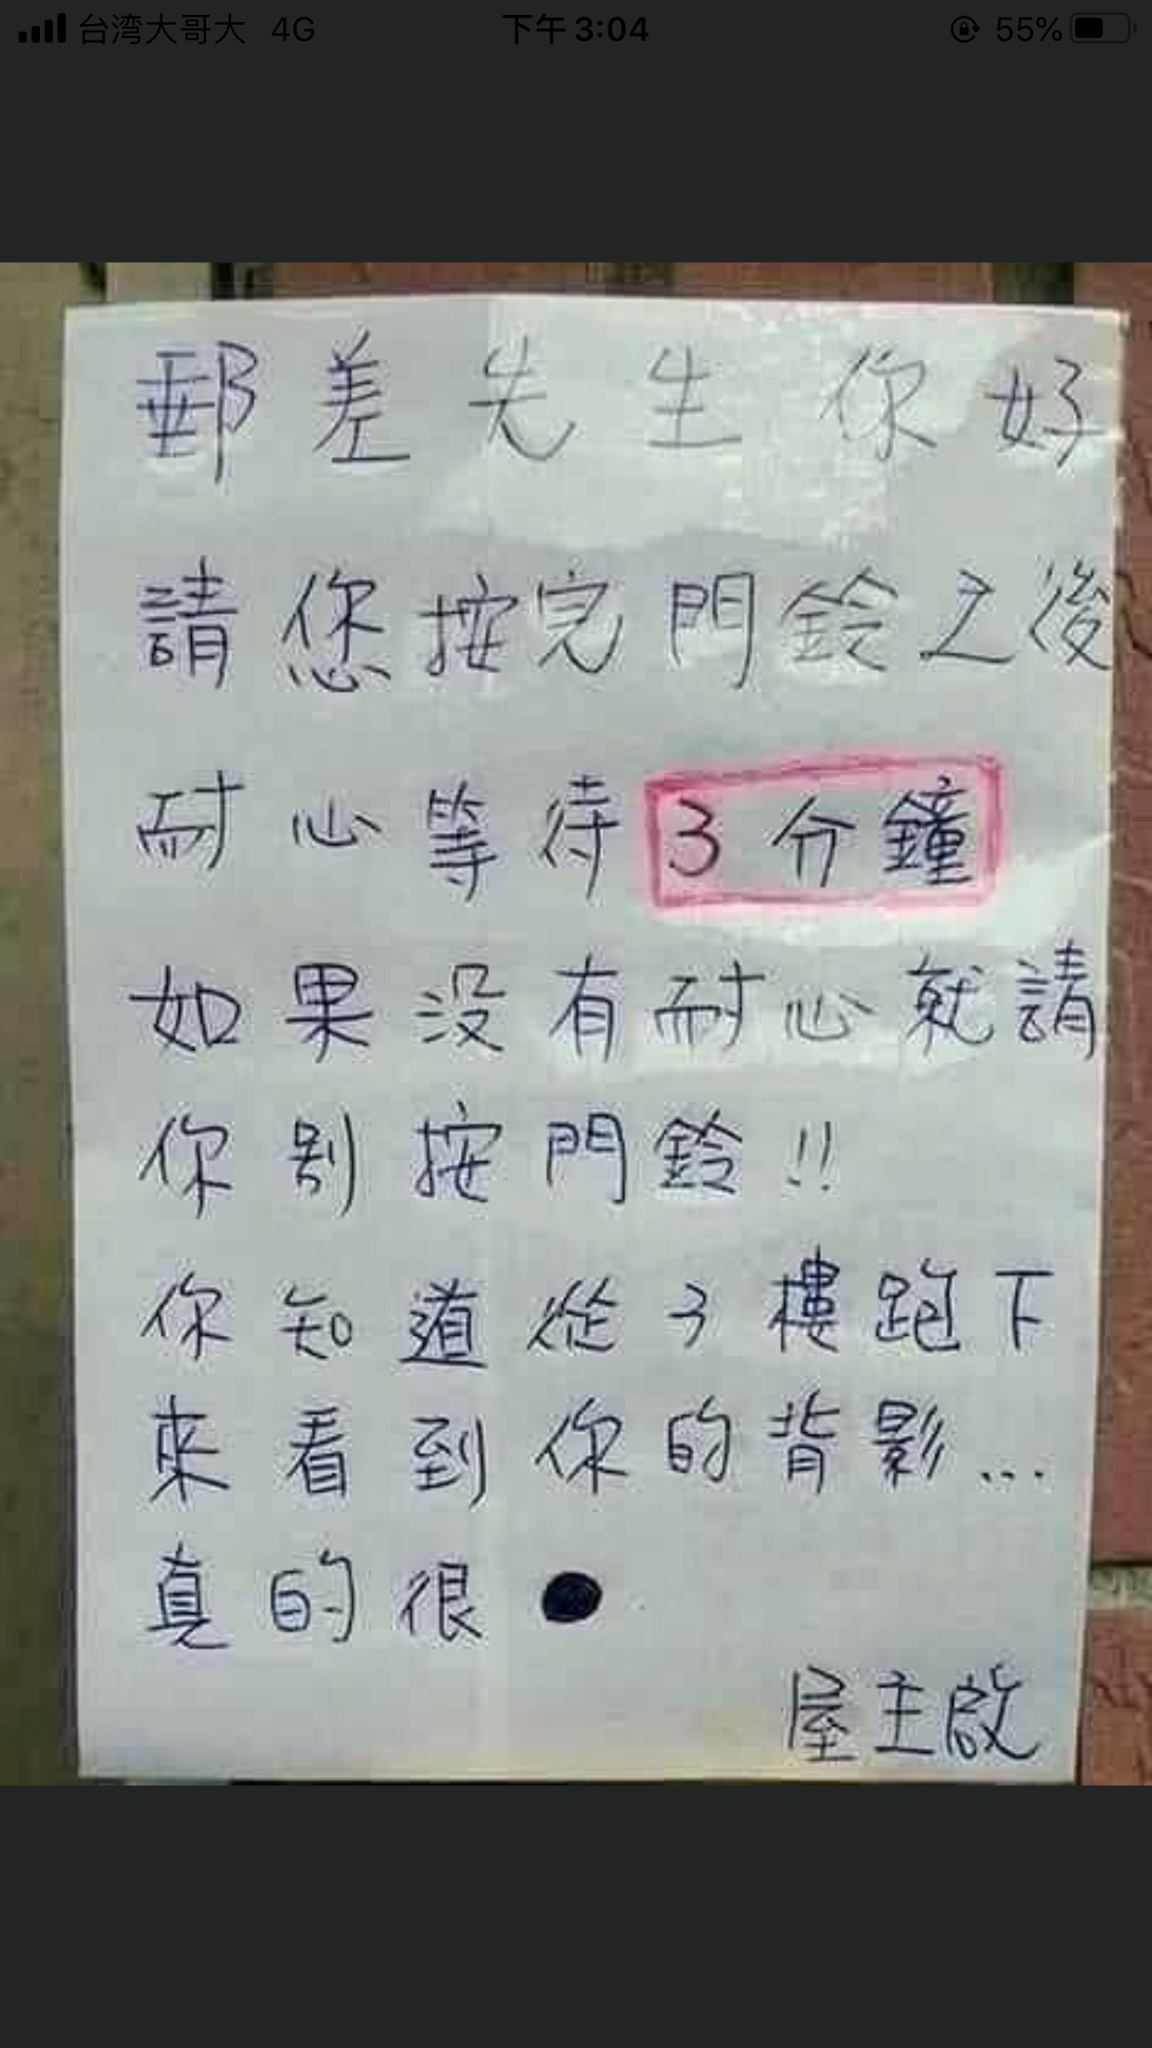 台湾大哥大 4G 下午3:04 55%
郵差先生你好
請您按完門鈴之後
耐心等待3分鐘
如果沒有耐心就請
你別按門鈴!!
你知道從3樓跑下
來看到你的背影...
真的很●
屋主啟